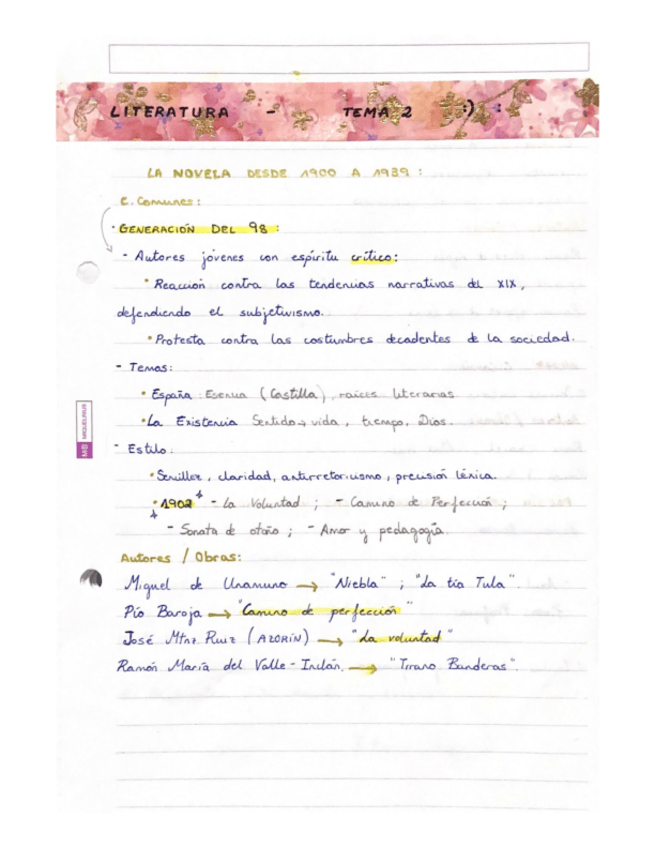 LITERATURA - TEMA 2 :) :
LA NOVELA DESDE 1900 A 1939 :
C. Comunes :
· GENERACIÓN DEL 98 :
- Autores jóvenes con espíritu crítico :
· Reacción contra las tendencias narrativas del XIX ,
defendiendo el subjetivismo.
· Protesta contra las costumbres decadentes de la sociedad.
- Temas :
· España : Esencia ( Castilla ) , raíces literarias
· La Existencia Sentido → vida , tiempo, Dios .
- Estilo :
· Sencillez , claridad, antirretoricismo , precisión léxica.
· 1902 - La Voluntad ; - Camino de Perfección ;
- Sonata de otoño ; - Amor y pedagogía
Autores / Obras :
Miguel de Unamuno → "Niebla" ; "La tía Tula" .
Pío Baroja → "Camino de perfección"
José Mtnz Ruiz ( AZORÍN ) → "La voluntad"
Ramón María del Valle - Inclán. → "Tirano Banderas" .
MIQUELRIUS